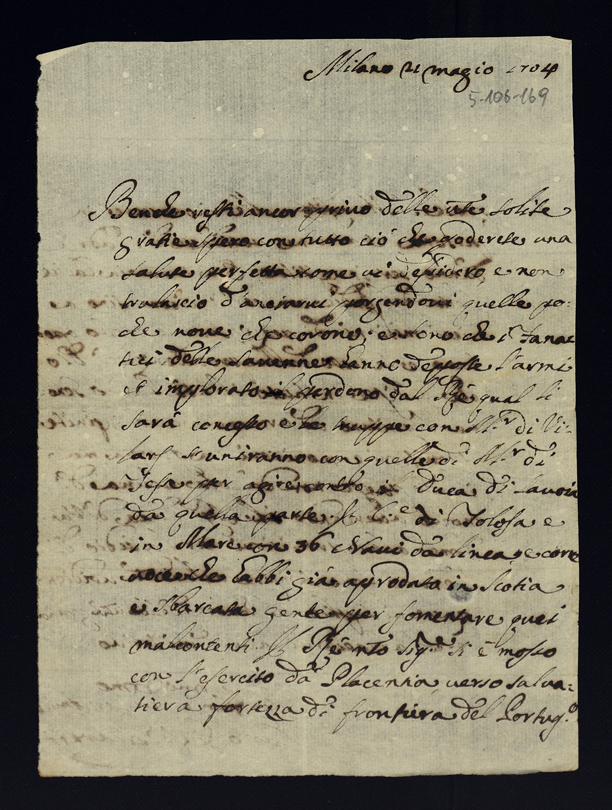 Milano 21 magio 1704
5-106-169
Benche resti ancor privo delle v̅re̅ solite
gratie spero con tutto ciò che goderete una
salute perfetta come vi desidero, e non
tralascio d'anciarvi porgendovi quelle po=
che nove che corono, e sono che i fanat
tici delle Savenne hanno deposte l'armi
et implorato il perdono dal Rè qual li
sarà concesso e le truppe con M.r di Vi=
lars s'uniranno con quelle di M.r di
Tesse per agire contro il Duca di Savoia
da quella parte Il C.e di Tolosa e
in Mare con 36 Navi da linea, e corre
voce che habbi già aprodata in Scotia
e sbarcata gente per fomentare quei
malcontenti Il Rè nro Sig.re si è mosso
con l'esercito da Placentia verso Salva=
tiera fortezza di frontiera del Portug.o